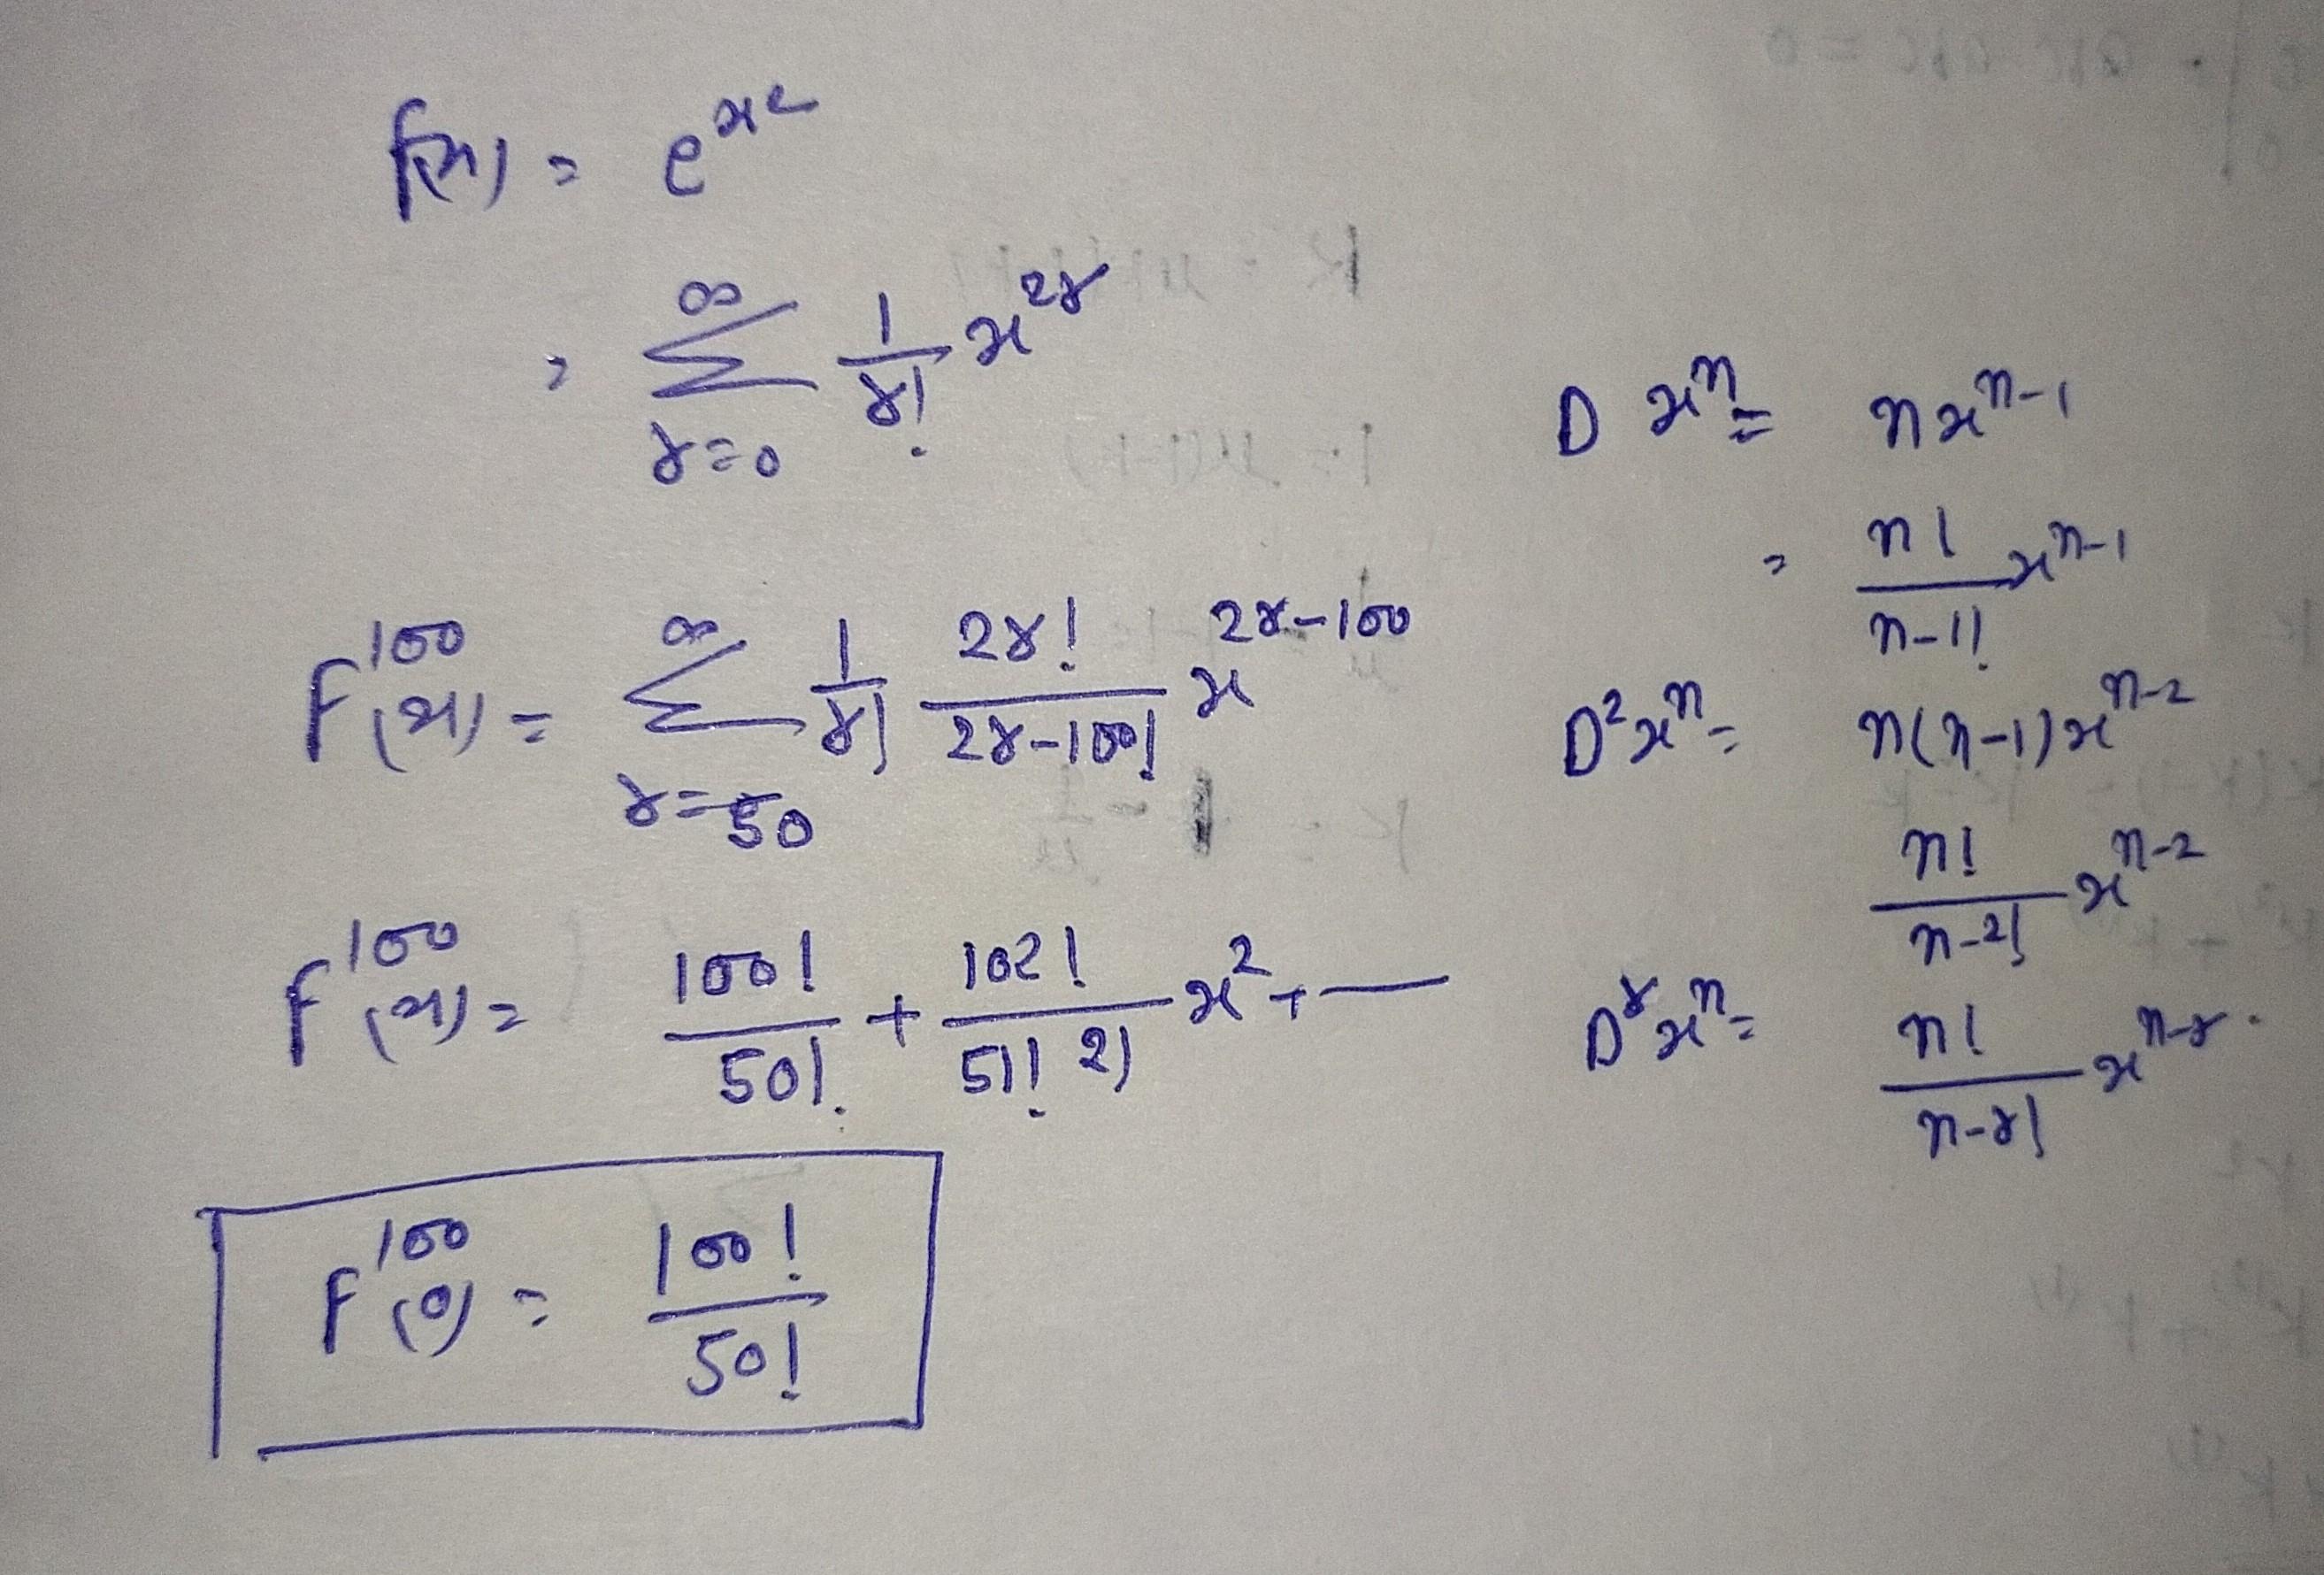 f(x) = e^{x^2}
= \sum_{r=0}^{∞} \frac{1}{r!} x^{2r}
f^{100}(x) = \sum_{r=50}^{∞} \frac{1}{r!} \frac{2r!}{2r-100!} x^{2r-100}
f^{100}(x) = \frac{100!}{50!} + \frac{102!}{51! 2!} x^2 + —
f^{100}(0) = \frac{100!}{50!}
D x^n = n x^{n-1}
= \frac{n!}{n-1!} x^{n-1}
D^2 x^n = n(n-1) x^{n-2}
\frac{n!}{n-2!} x^{n-2}
D^r x^n = \frac{n!}{n-r!} x^{n-r}.